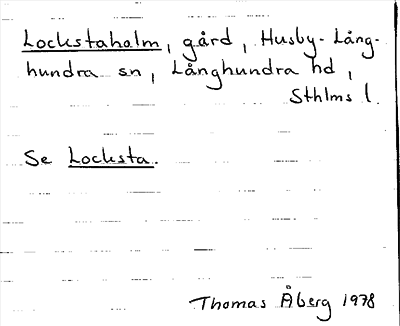 Lockstaholm, gård, Husby-Lång-
hundra sn, Långhundra hd,
Sthlms l.
Se Locksta.
Thomas Åberg 1978